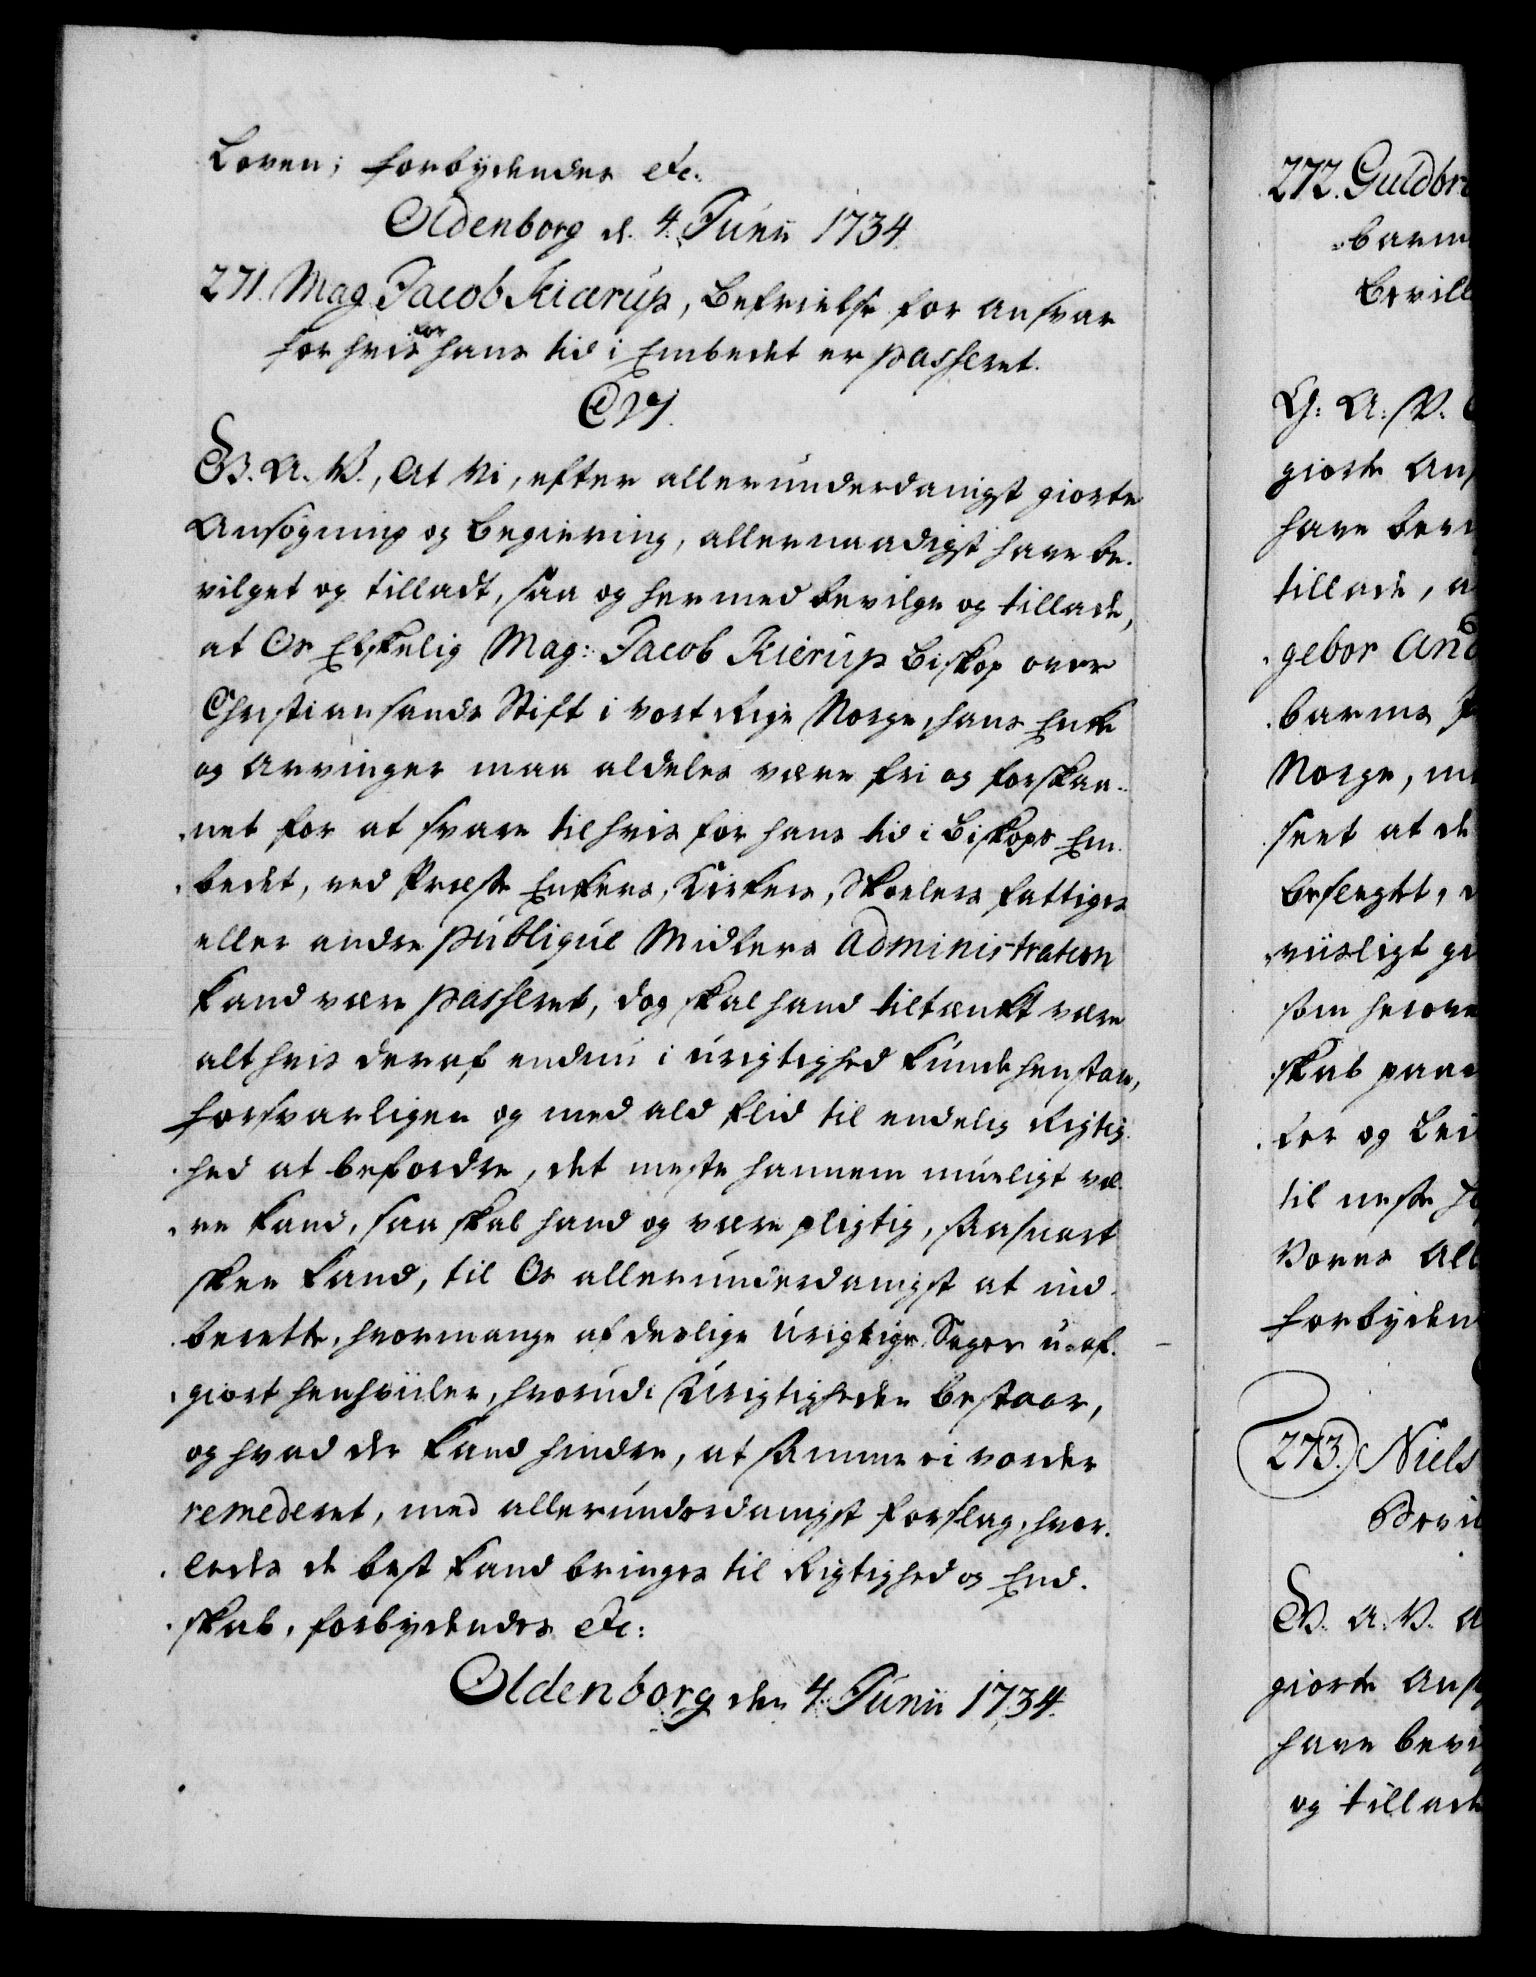 Loven; forbydendes etc.
Oldenborg d. 4. Junii 1734.
271. Mag. Jacob Kiærup, Befrielse for Ansvar
for hvis for hans tid i Embedet er passeret.
C 6.
G. A. V., At Vi, efter allerunderdanigst giorte
Ansøgning og begiering, allernaadigst have be-
vilget og tilladt, saa og hermed bevilge og tillade,
at Os Elskelig Mag: Jacob Kierup Biskop over
Christiansands Stift i vort Rige Norge, hans Enke
og Arvinger maa aldeles være fri og forskaa-
net for at svare til hvis for hans tid i Biskops Em-
bedet, ved Præste Enkers, Kirkers, Skolers fattiges
eller andre publique Midlers Administration
kand være passeret, dog skal hand tiltænkt være
alt hvis deraf endnu i urigtighed kunde henstaa,
forsvarligen og med ald flid til endelig Rigtig-
hed at befordre, det meste hannem mueligt væ-
re kand, saa skal hand og være pligtig, saasnart
skee kand, til Os allerunderdanigst at ind-
berette, hvormange af deslige urigtige Sager uaf-
giort henhviiler, hvorudi Urigtigheden bestaar,
og hvad der kand hindre, at samme ei vorder
remederet, med allerunderdanigst forslag, hvor-
ledes de best kand bringes til Rigtighed og End-
skab, forbydendes etc:
Oldenborg den 4. Junii 1734.
272. Guldbr
barns
Bevill
G: A: V.
giorte Ans
have bevi
tillade, a
gebor And
barns
Norge, m
seet at de
beslegtet,
viisligt gi
som herove
skab paa
for og Lei
til neste
Vores All
forbyden
273. Niels
Bevil
G. A. V. A
giorte Ans
have bevi
og tillade